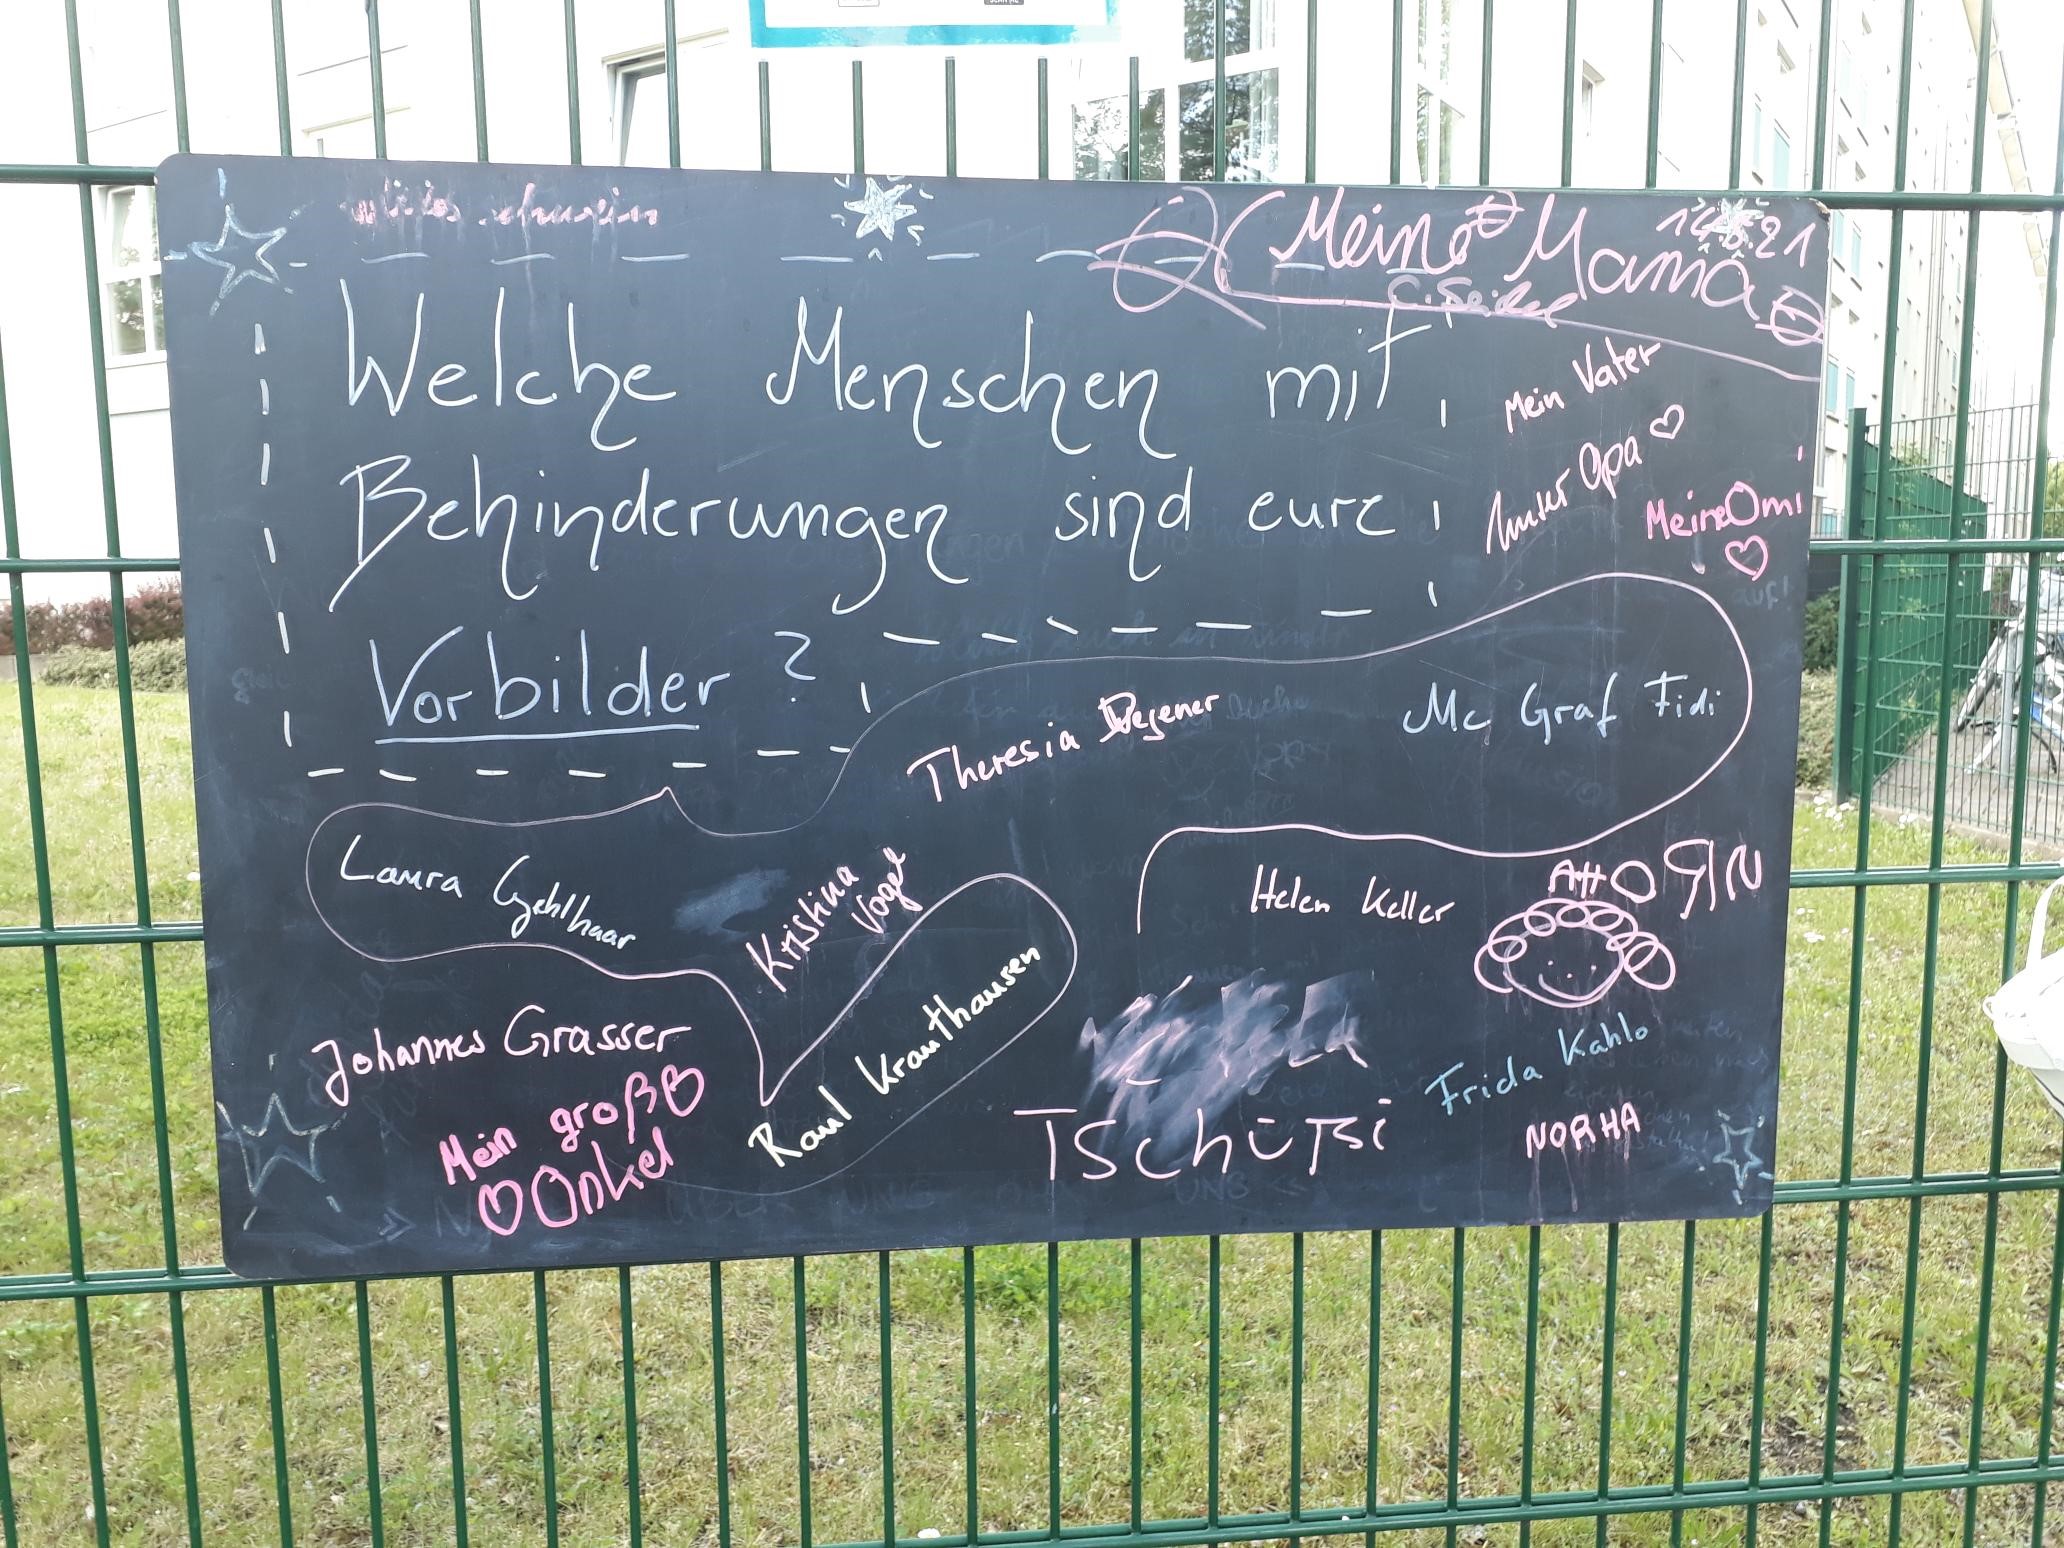 Meine Mama
14.5.21
Welche Menschen mit
Behinderungen sind eure
Vorbilder ?
Mein Vater
Opa
Meine Omi
Theresia Degener
Mc Graf Fidi
Laura Gehlhaar
Kristina
Vogel
Helen Keller
Raul Krauthausen
Johannes Grasser
Mein groß
Onkel
Tschüßi
Frida Kahlo
NORHA